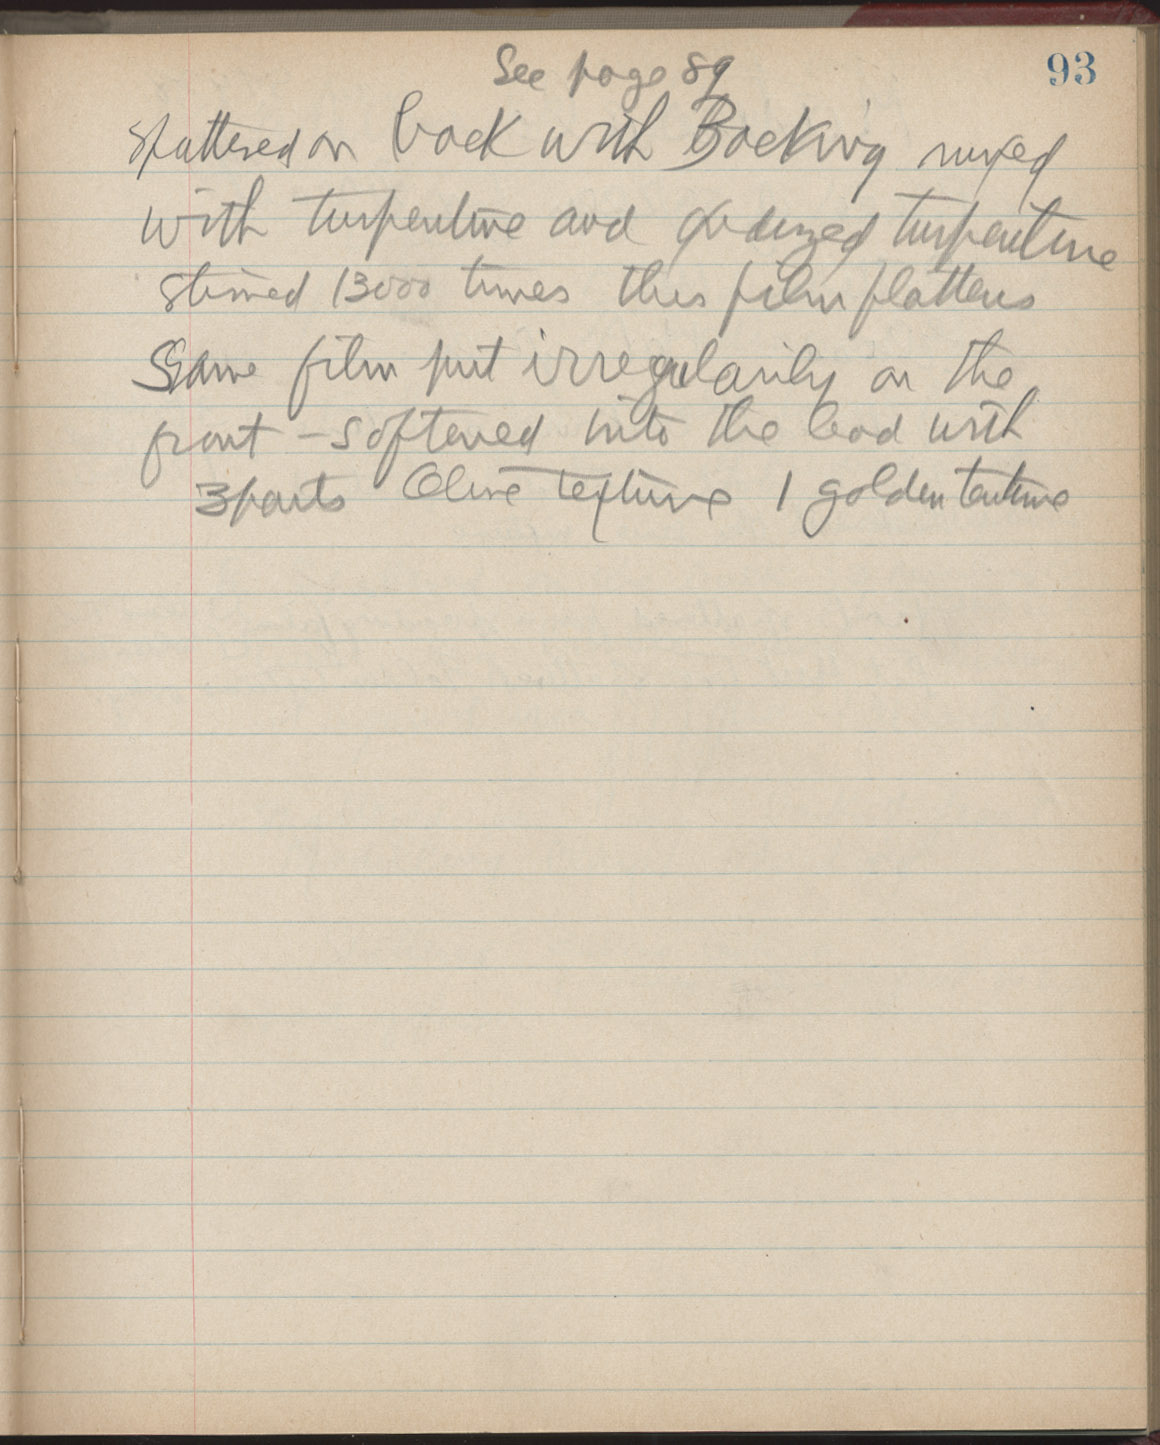 See page 89
93
Spattered on back with Backing mixed
with turpentine and oxidized turpentine
stirred 13000 times this film flattens
Same film put irregularily on the
front - softened into the lead with
3 parts Olive texture 1 golden texture